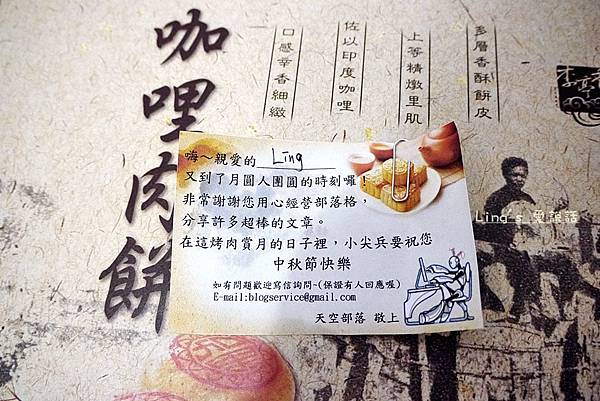 咖哩肉餅
多層香酥餅皮
上等精燉里肌
佐以印度咖哩
口感辛香細緻
嗨～親愛的 Ling
又到了月圓人團圓的時刻囉！
非常謝謝您用心經營部落格，
分享許多超棒的文章。
在這烤肉賞月的日子裡，小尖兵要祝您
中秋節快樂
如有問題歡迎寫信詢問~(保證有人回應喔)
E-mail:blogservice@gmail.com
天空部落 敬上
Ling's 愛說話